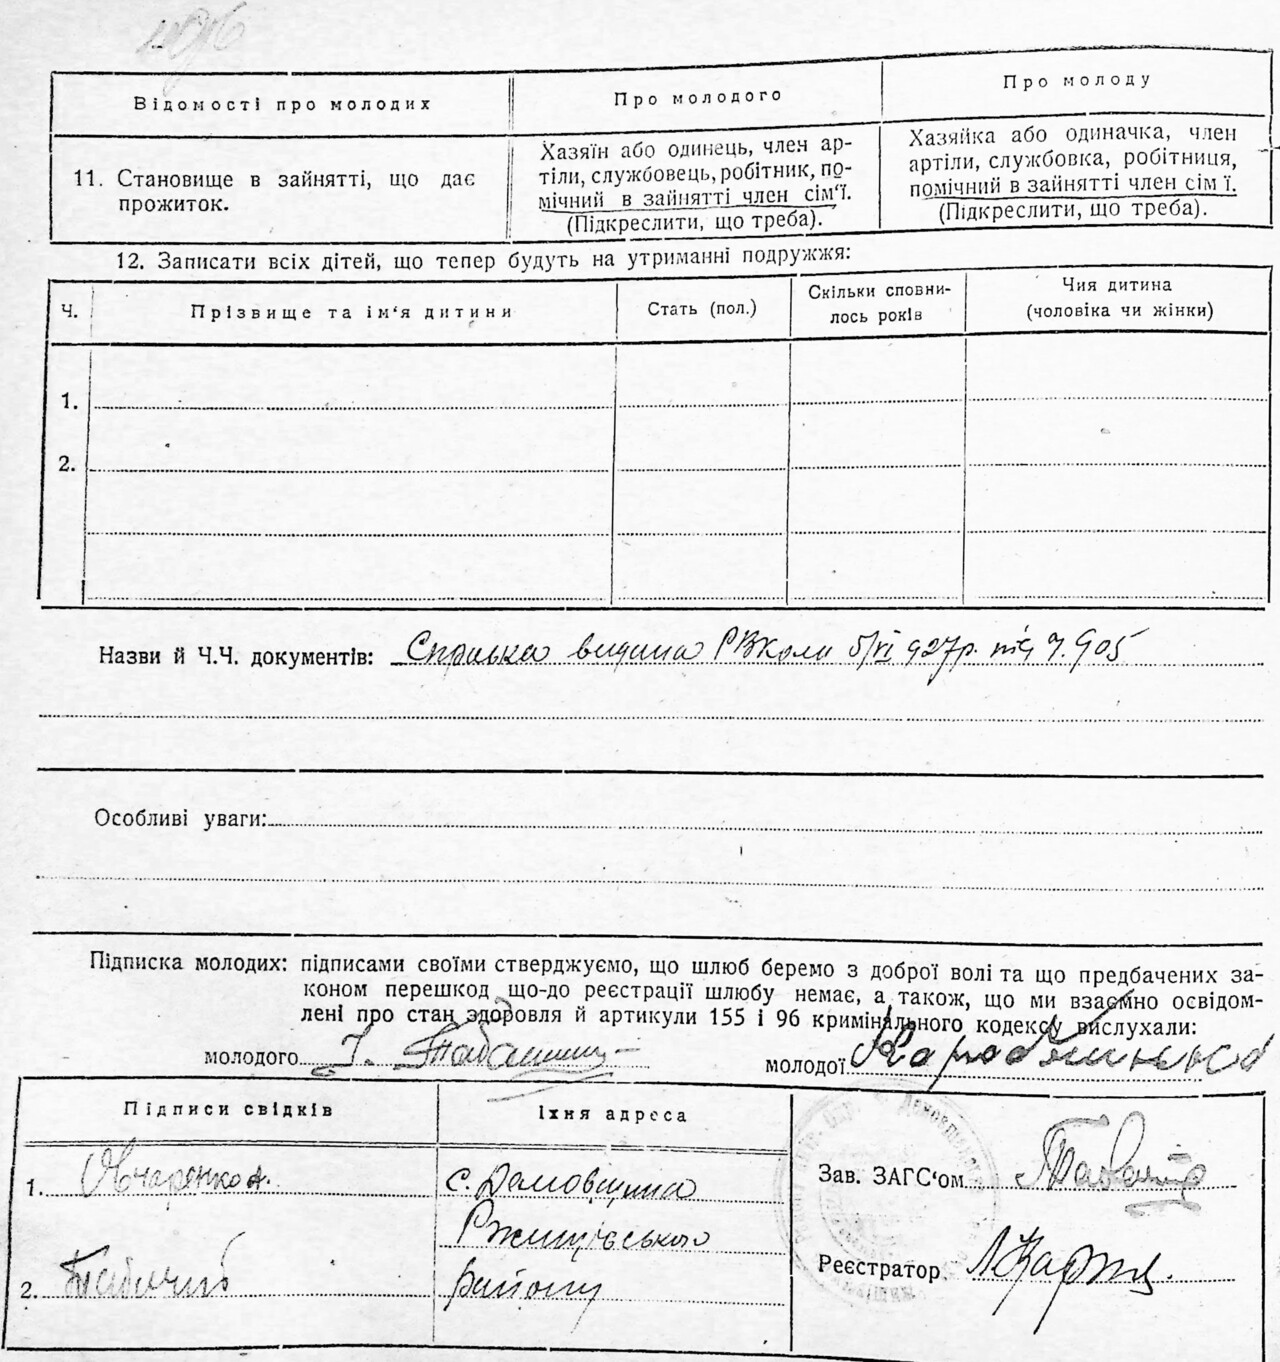 Відомості про молодих
Про молодого
Про молоду
11. Становище в зайнятті, що дає
прожиток.
Хазяїн або одинець, член ар-
тіли, службовець, робітник, по-
мічний в зайнятті член сім'ї.
(Підкреслити, що треба).
Хазяйка або одиначка, член
артіли, службовка, робітниця,
помічний в зайнятті член сім ї.
(Підкреслити, що треба).
12. Записати всіх дітей, що тепер будуть на утриманні подружжя:
Ч.
Прізвище та ім'я дитини
Стать (пол.)
Скільки сповни-
лось років
Чия дитина
(чоловіка чи жінки)
1.
2.
Назви й Ч.Ч. документів: Справка видана РВКом 5/VI 927р. під ч. 905
Особливі уваги:
Підписка молодих: підписами своїми стверджуємо, що шлюб беремо з доброї волі та що предбачених за-
коном перешкод що-до реєстрації шлюбу немає, а також, що ми взаємно освідом-
лені про стан здоровля й артикули 155 і 96 кримінального кодексу вислухали:
молодого
молодої
Підписи свідків
Їхня адреса
1. Овчаренко А.
с. Демовщина
Ржищівського
2.
району
Зав. ЗАГС'ом
Реєстратор